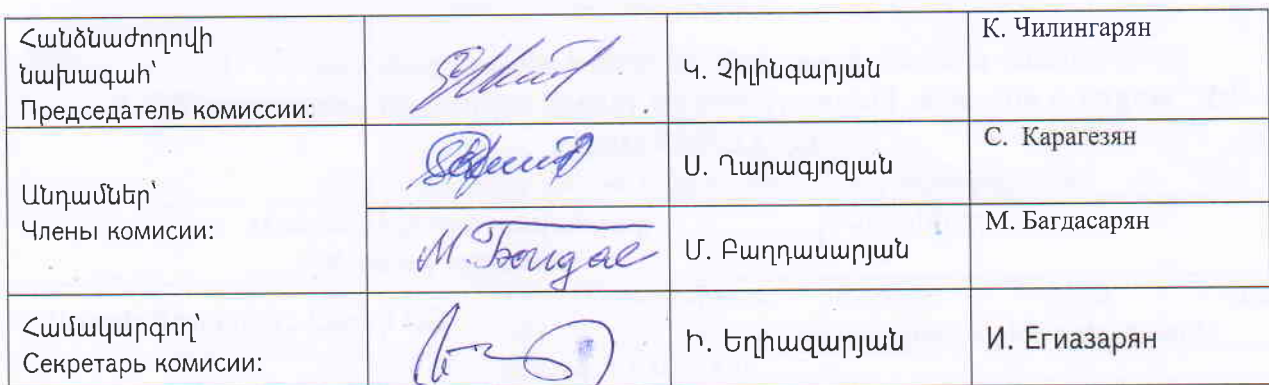 Հանձնաժողովի
նախագահ՝
Председатель комиссии:
Կ. Չիլինգարյան
К. Чилингарян
Անդամներ՝
Члены комисии:
Ս. Ղարագյոզյան
С. Карагезян
М. Багдас
Մ. Բաղդասարյան
М. Багдасарян
Համակարգող՝
Секретарь комисии:
Ի. Եղիազարյան
И. Егиазарян